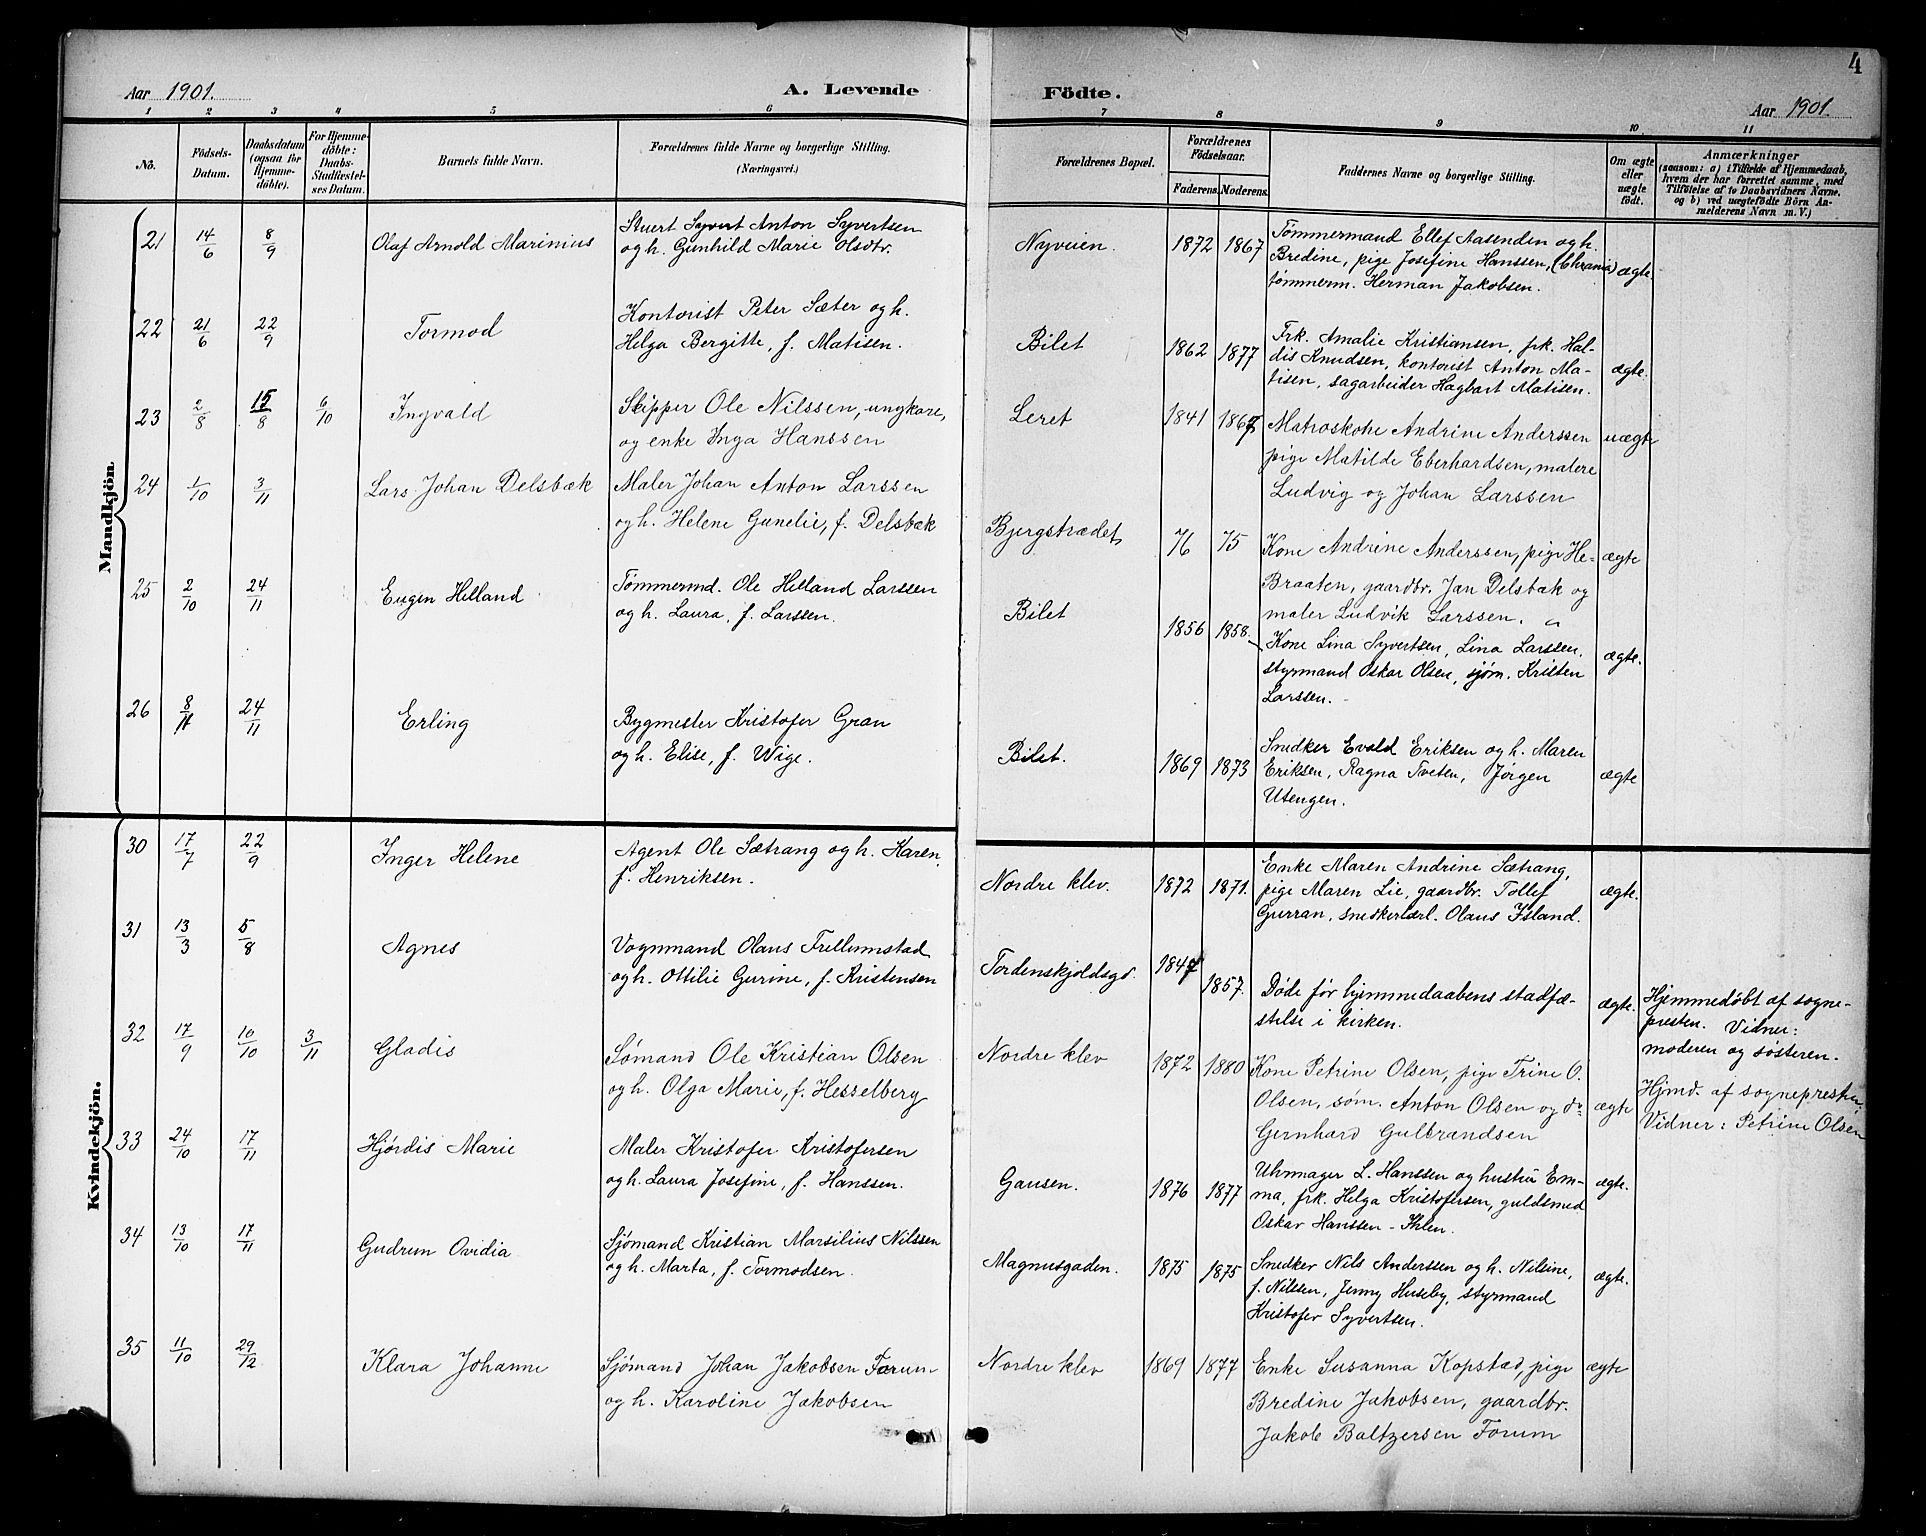 4
Aar 1901. A. Levende Födte. Aar 1901.
1 2 3 4 5 6 7 8 9 10 11
No. Födsels-Datum. Daabsdatum (ogsaa for Hjemme-döbte). For Hjemme-döbte: Daabs-Stadfæstel-ses Datum. Barnets fulde Navn. Forældrenes fulde Navne og borgerlige Stilling. (Næringsvei.) Forældrenes Bopæl. Forældrenes Födselsaar. Faderens. Moderens. Faddernes Navne og borgerlige Stilling. Om ægte eller uægte födt. Anmærkninger (saasom: a) i Tilfælde af Hjemmedaab, hvem der har forrettet samme, med Tilföielse af to Daabsvidners Navne. og b) ved uægtefödte Börn An-melderens Navn m. V.)
Mandkjön.
21 14/6 8/9 Olaf Arnold Marinius
Stuert Syvert Anton Syvertsen
og h. Gunhild Marie Olsdtr.
Nyveien. 1872 1867
Tömmermand Ellef Aasenden og h.
Bredine, pige Josefine Hanssen, (Chrania)
tømmerm. Herman Jakobsen.
ægte.
22 21/6 22/9 Tormod
Kontorist Peter Sæter og h.
Helga Bergitte, f. Matisen.
Bilet 1862 1877
Frk. Amalie Kristiansen, frk. Hal-
dis Knudsen, kontorist Anton Ma-
tisen, sagarbeider Hagbart Matisen.
ægte.
23 2/8 15/8 6/10 Ingvald
Skipper Ole Nilssen, ungkare,
og enke Inga Hanssen
Leret 1841 1867
Matroskone Andrine Anderssen
pige Matilde Eberhardsen, malere
Ludvig og Johan Larssen
uægte
24 1/10 3/11 Lars Johan Delsbæk
Maler Johan Anton Larssen
og h. Helene Gunelie, f. Delsbæk
Bjergstrædet 76 75
Kone Andrine Anderssen, pige He-
Braaten, gaardbr. Jan Delsbæk og
maler Ludvik Larssen.
ægte
25 2/10 24/11 Eugen Helland
Tømmermd. Ole Helland Larssen
og h. Laura, f. Larssen.
Bilet 1856 1858.
Kone Lina Syvertsen, Lina Larssen.
styrmand Oskar Olsen, sjøm. Kristen
Larssen.
ægte.
26 8/11 24/11 Erling
Bygmester Kristofer Gran
og h. Elise, f. Wige.
Bilet. 1869 1873
Snedker Evald Eriksen og h. Maren
Eriksen, Ragna Tveten, Jørgen
Utengen.
ægte
Kvindekjön.
30 17/7 22/9 Inger Helene
Agent Ole Sætrang og h. Karen,
f. Henriksen.
Nordre klev. 1872 1871.
Enke Maren Andrine Sætrang,
pige Maren Lie, gaardbr. Tollef
Gurran, snekerlærl. Olaus Island.
ægte.
31 13/3 5/8 Agnes
Vognmand Olaus Frellumstad
og h. Ottilie Gurine, f. Kristensen
Tordenskjoldsgd. 1847 1857.
Døde før hjemmedaabens stadfæ-
stelse i kirken.
ægte.
Hjemmedøbt af sogne-
presten. Vidner:
moderen og søsteren.
32 17/9 10/10 3/11 Gladis
Sømand Ole Kristian Olsen
og h. Olga Marie, f. Hesselberg
Nordre klev 1872 1880
Kone Petrine Olsen, pige Trine O.
Olsen, søm. Anton Olsen og do
Gernhard Gulbrandsen
ægte
Hjmd. af sognepresten
Vidner: Petrine Olsen
33 24/10 17/11 Hjørdis Marie
Maler Kristofer Kristofersen
og h. Laura Josefine, f. Hanssen.
Gausen. 1876 1877
Uhrmager L. Hanssen og hustru Em-
ma, frk. Helga Kristofersen, guldsmed
Oskar Hanssen-Ihlen.
ægte.
34 13/10 17/11 Gudrun Ovidia
Sjømand Kristian Marsilius Nilssen
og h. Marta, f. Tormodsen.
Magnusgaden. 1875 1875
Snedker Nils Anderssen og h. Nilsine,
f. Nilssen, Jenny Huseby, styrmand
Kristofer Syvertsen.
ægte.
35 11/10 29/12 Klara Johanne
Sjømand Johan Jakobsen Forum
og h. Karoline Jakobsen
Nordre klev 1869 1877
Enke Susanna Kopstad, pige
Bredine Jakobsen, gaardbr.
Jakob Baltzersen Forum
ægte